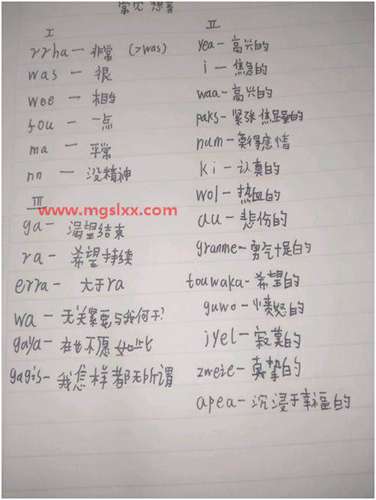 常见 想音
I
rrha — 非常 (>was)
was — 很
wee — 相当
fou — 一点
ma — 平常
nn — 没精神
III
ga — 渴望结束
ra — 希望持续
erra — 大于ra
wa — 无关紧要与我何干?
gaya — 在也不愿如此
gagis — 我怎样都无所谓
II
yea — 高兴的
i — 焦急的
waa — 高兴的
paks — 紧张 焦虑的
num — 莫得感情
ki — 认真的
wol — 热血的
au — 悲伤的
granme — 勇气十足的
touwaka — 希望的
guwo — 愤怒的
iyel — 寂寞的
zweie — 真挚的
apea — 沉浸于幸福的
www.mgslxx.com